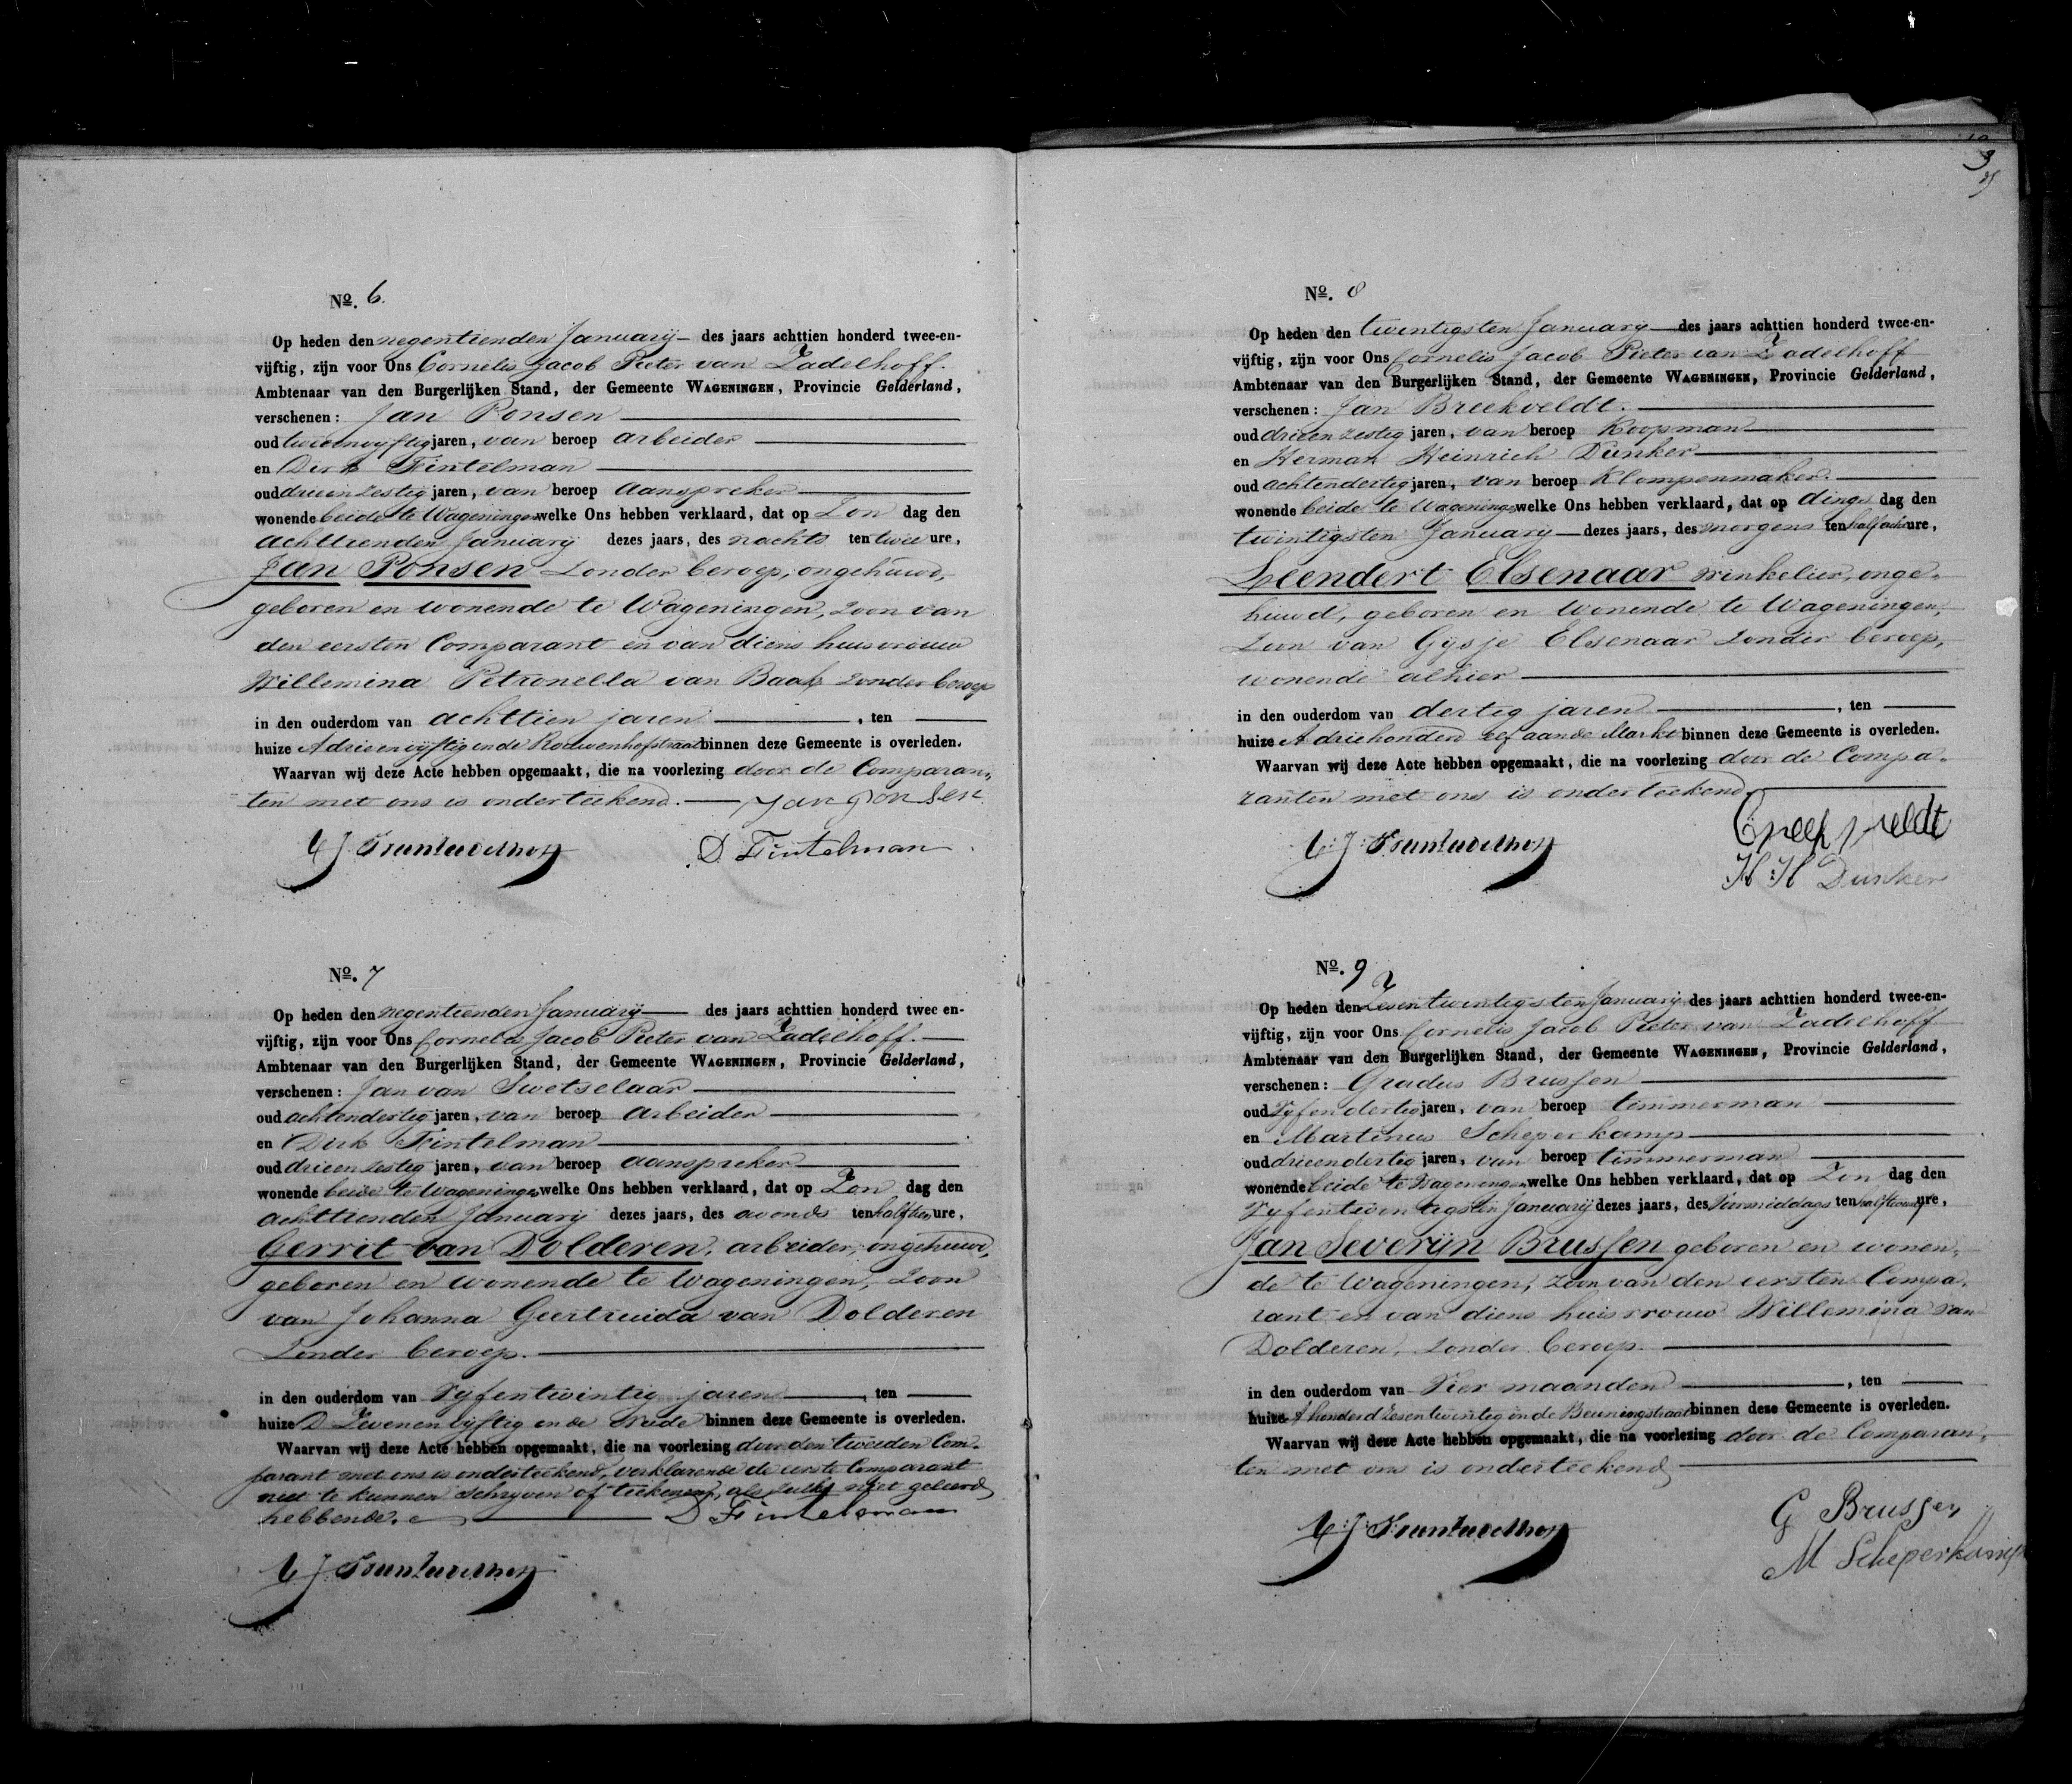 No. 6.
Op heden den negentienden January des jaars achttien honderd twee-en-
vijftig, zijn voor Ons Cornelis Jacob Pieter van Zadelhoff.
Ambtenaar van den Burgerlijken Stand, der Gemeente WAGENINGEN, Provincie Gelderland,
verschenen: Jan Ponsen
oud tweeenvyftig jaren, van beroep arbeider
en Dirk Fintelman
oud drieenzestig jaren, van beroep aanspreker
wonende beide te Wageningen welke Ons hebben verklaard, dat op Zon dag den
achttienden January dezes jaars, des nachts ten twee ure,
Jan Ponsen zonder beroep, ongehuwd,
geboren en wonende te Wageningen, zoon van
den eersten Comparant en van diens huisvrouw
Willemina Petronella van Baak zonder beroep
in den ouderdom van achttien jaren, ten
huize A drieenvyftig in de Rouwenhofstraat binnen deze Gemeente is overleden.
Waarvan wij deze Acte hebben opgemaakt, die na voorlezing door de Comparan,
ten met ons is onderteekend. Jan Ponsen
D. Fintelman
No. 7
Op heden den negentienden January des jaars achttien honderd twee en-
vijftig, zijn voor Ons Cornelis Jacob Pieter van Zadelhoff.
Ambtenaar van den Burgerlijken Stand, der Gemeente WAGENINGEN, Provincie Gelderland,
verschenen: Jan van Swetselaar
oud achtendertig jaren, van beroep arbeider
en Dirk Fintelman
oud drieenzestig jaren, van beroep aanspreker
wonende beide te Wageningen welke Ons hebben verklaard, dat op Zon dag den
achttienden January dezes jaars, des avonds ten half ure,
Gerrit van Dolderen, arbeider, ongehuwd,
geboren en wonende te Wageningen, zoon
van Johanna Geertruida van Dolderen
zonder beroep.
in den ouderdom van Vyfentwintig jaren, ten
huize D Zevenenvyftig in de Weide binnen deze Gemeente is overleden.
Waarvan wij deze Acte hebben opgemaakt, die na voorlezing door den tweeden Com-
parant met ons is onderteekend, verklarende de eerste Comparant
niet te kunnen schryven of teekenen, als zulks niet geleerd
hebbende. D Fintelman
No. 8
Op heden den twintigsten January des jaars achttien honderd twee-en-
vijftig, zijn voor Ons Cornelis Jacob Pieter van Zadelhoff
Ambtenaar van den Burgerlijken Stand, der Gemeente WAGENINGEN, Provincie Gelderland,
verschenen: Jan Breekveldt.
oud drieenzestig jaren, van beroep Koopman
en Herman Heinrich Dunker
oud achtendertig jaren, van beroep Klompenmaker.
wonende beide te Wageningen welke Ons hebben verklaard, dat op dings dag den
twintigsten January dezes jaars, des morgens ten half acht ure,
Leendert Elsenaar winkelier, onge-
huwd, geboren en wonende te Wageningen,
zoon van Gysje Elsenaar zonder beroep,
wonende alhier
in den ouderdom van dertig jaren, ten
huize A driehonderd elf aan de Markt binnen deze Gemeente is overleden.
Waarvan wij deze Acte hebben opgemaakt, die na voorlezing door de Compa-
ranten met ons is onderteekend.
Breekveldt
H H Dunker
No. 9
Op heden den Zesentwintigsten January des jaars achttien honderd twee-en-
vijftig, zijn voor Ons Cornelis Jacob Pieter van Zadelhoff
Ambtenaar van den Burgerlijken Stand, der Gemeente WAGENINGEN, Provincie Gelderland,
verschenen: Gradus Brussen
oud Vyfendertig jaren, van beroep timmerman
en Martinus Scheperkamp
oud drieendertig jaren, van beroep timmerman
wonende beide te Wageningen welke Ons hebben verklaard, dat op Zon dag den
Vyfentwintigsten January dezes jaars, des Voormiddags ten half ure,
Jan Severijn Brussen geboren en wonen,
de te Wageningen, zoon van den eersten Compa,
rant en van diens huisvrouw Willemina van
Dolderen, zonder beroep.
in den ouderdom van Vier maanden, ten
huize A honderd zesentwintig in de Beuningstraat binnen deze Gemeente is overleden.
Waarvan wij deze Acte hebben opgemaakt, die na voorlezing door de Comparan,
ten met ons is onderteekend
G Brussen
M Scheperkamp